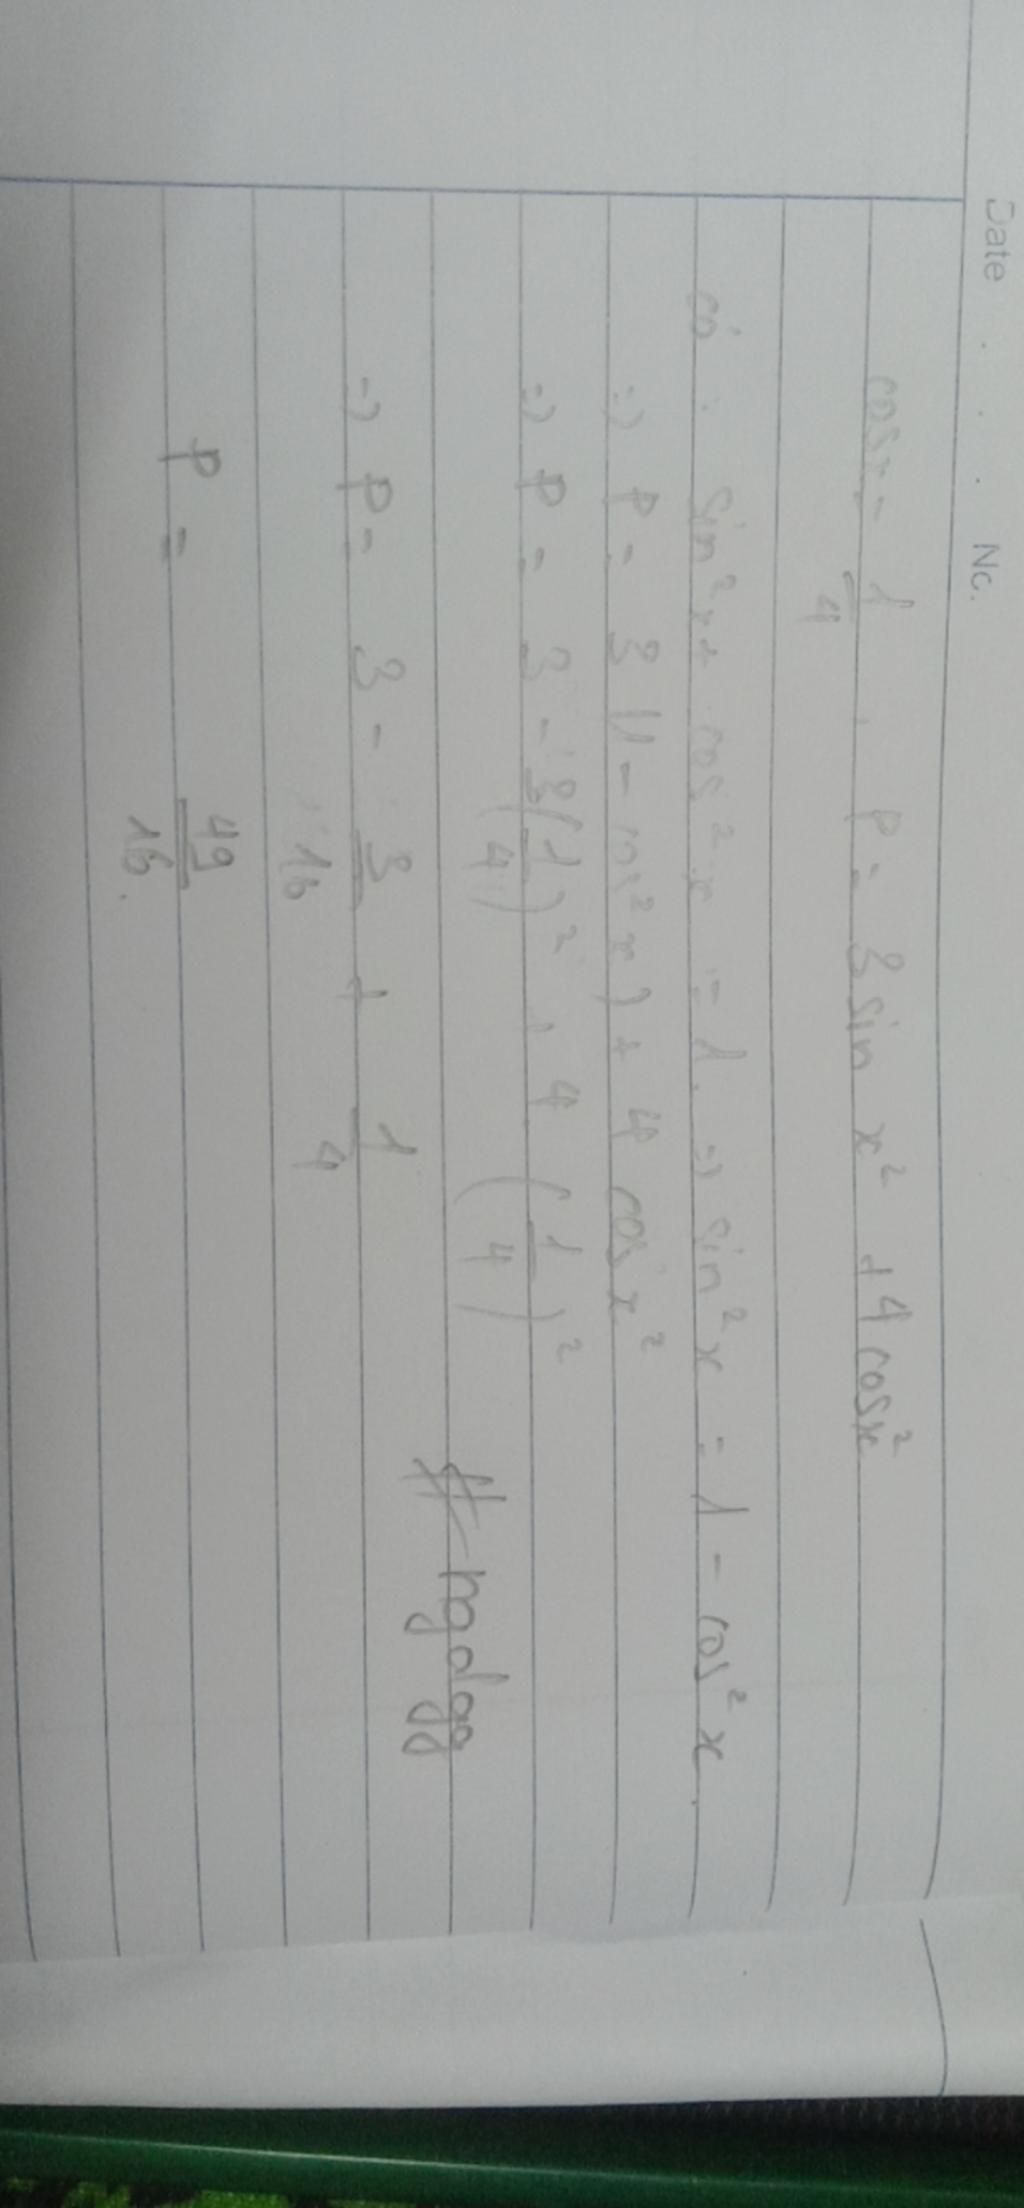 Date . . . No.
cosx = 1/4 , P = 3 sin x² + 4 cosx²
có : sin²x + cos²x = 1. => sin²x = 1 - cos²x.
=> P = 3 (1 - cos²x) + 4 cos x²
=> P = 3 - 3(1/4)² + 4 (1/4)²
=> P = 3 - 3/16 + 1/4
#ngdgg
P = 49/16.